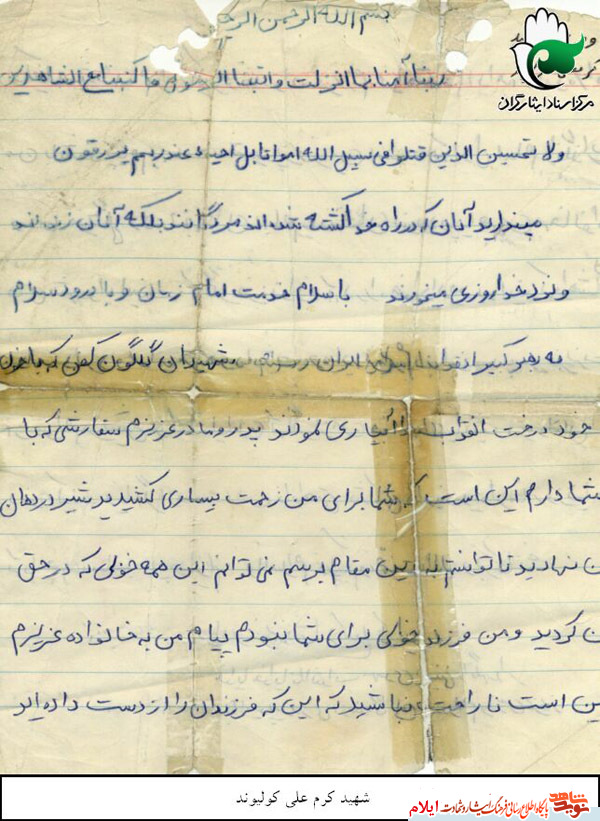 بسم الله الرحمن الرحیم
مرکز اسناد ایثارگران
ربنا آمنا بما انزلت و اتبعنا الرسول فاکتبنا مع الشاهدین
ولا تحسبن الذین قتلوا فی سبیل الله امواتا بل احیاء عند ربهم یرزقون
مپندارید آنان که در راه خدا کشته شده‌اند مرده‌گانند بلکه آنان زنده‌اند
و نزد خدا روزی میخورند با سلام خدمت امام زمان و با درود سلام
به رهبر کبیر انقلاب ایران شهیدان گلگون کفن که با خون
خود درخت انقلاب را آبیاری نمودند پدر و مادر عزیزم سفارشی که با
شما دارم این است که شما برای من زحمت بسیاری کشیدید شیر در دهان
نهادید تا توانستم به این مقام برسم نمی توانم این همه خوبی که در حق
کردید و من فرزند خوبی برای شما نبودم پیام من به خانواده عزیزم
این است ناراحت نباشید که این که فرزندان را از دست داده اید
شهید کرم علی کولیوند
نوید شاهد پایگاه اطلاع رسانی فرهنگ ایثار و شهادت ایلام